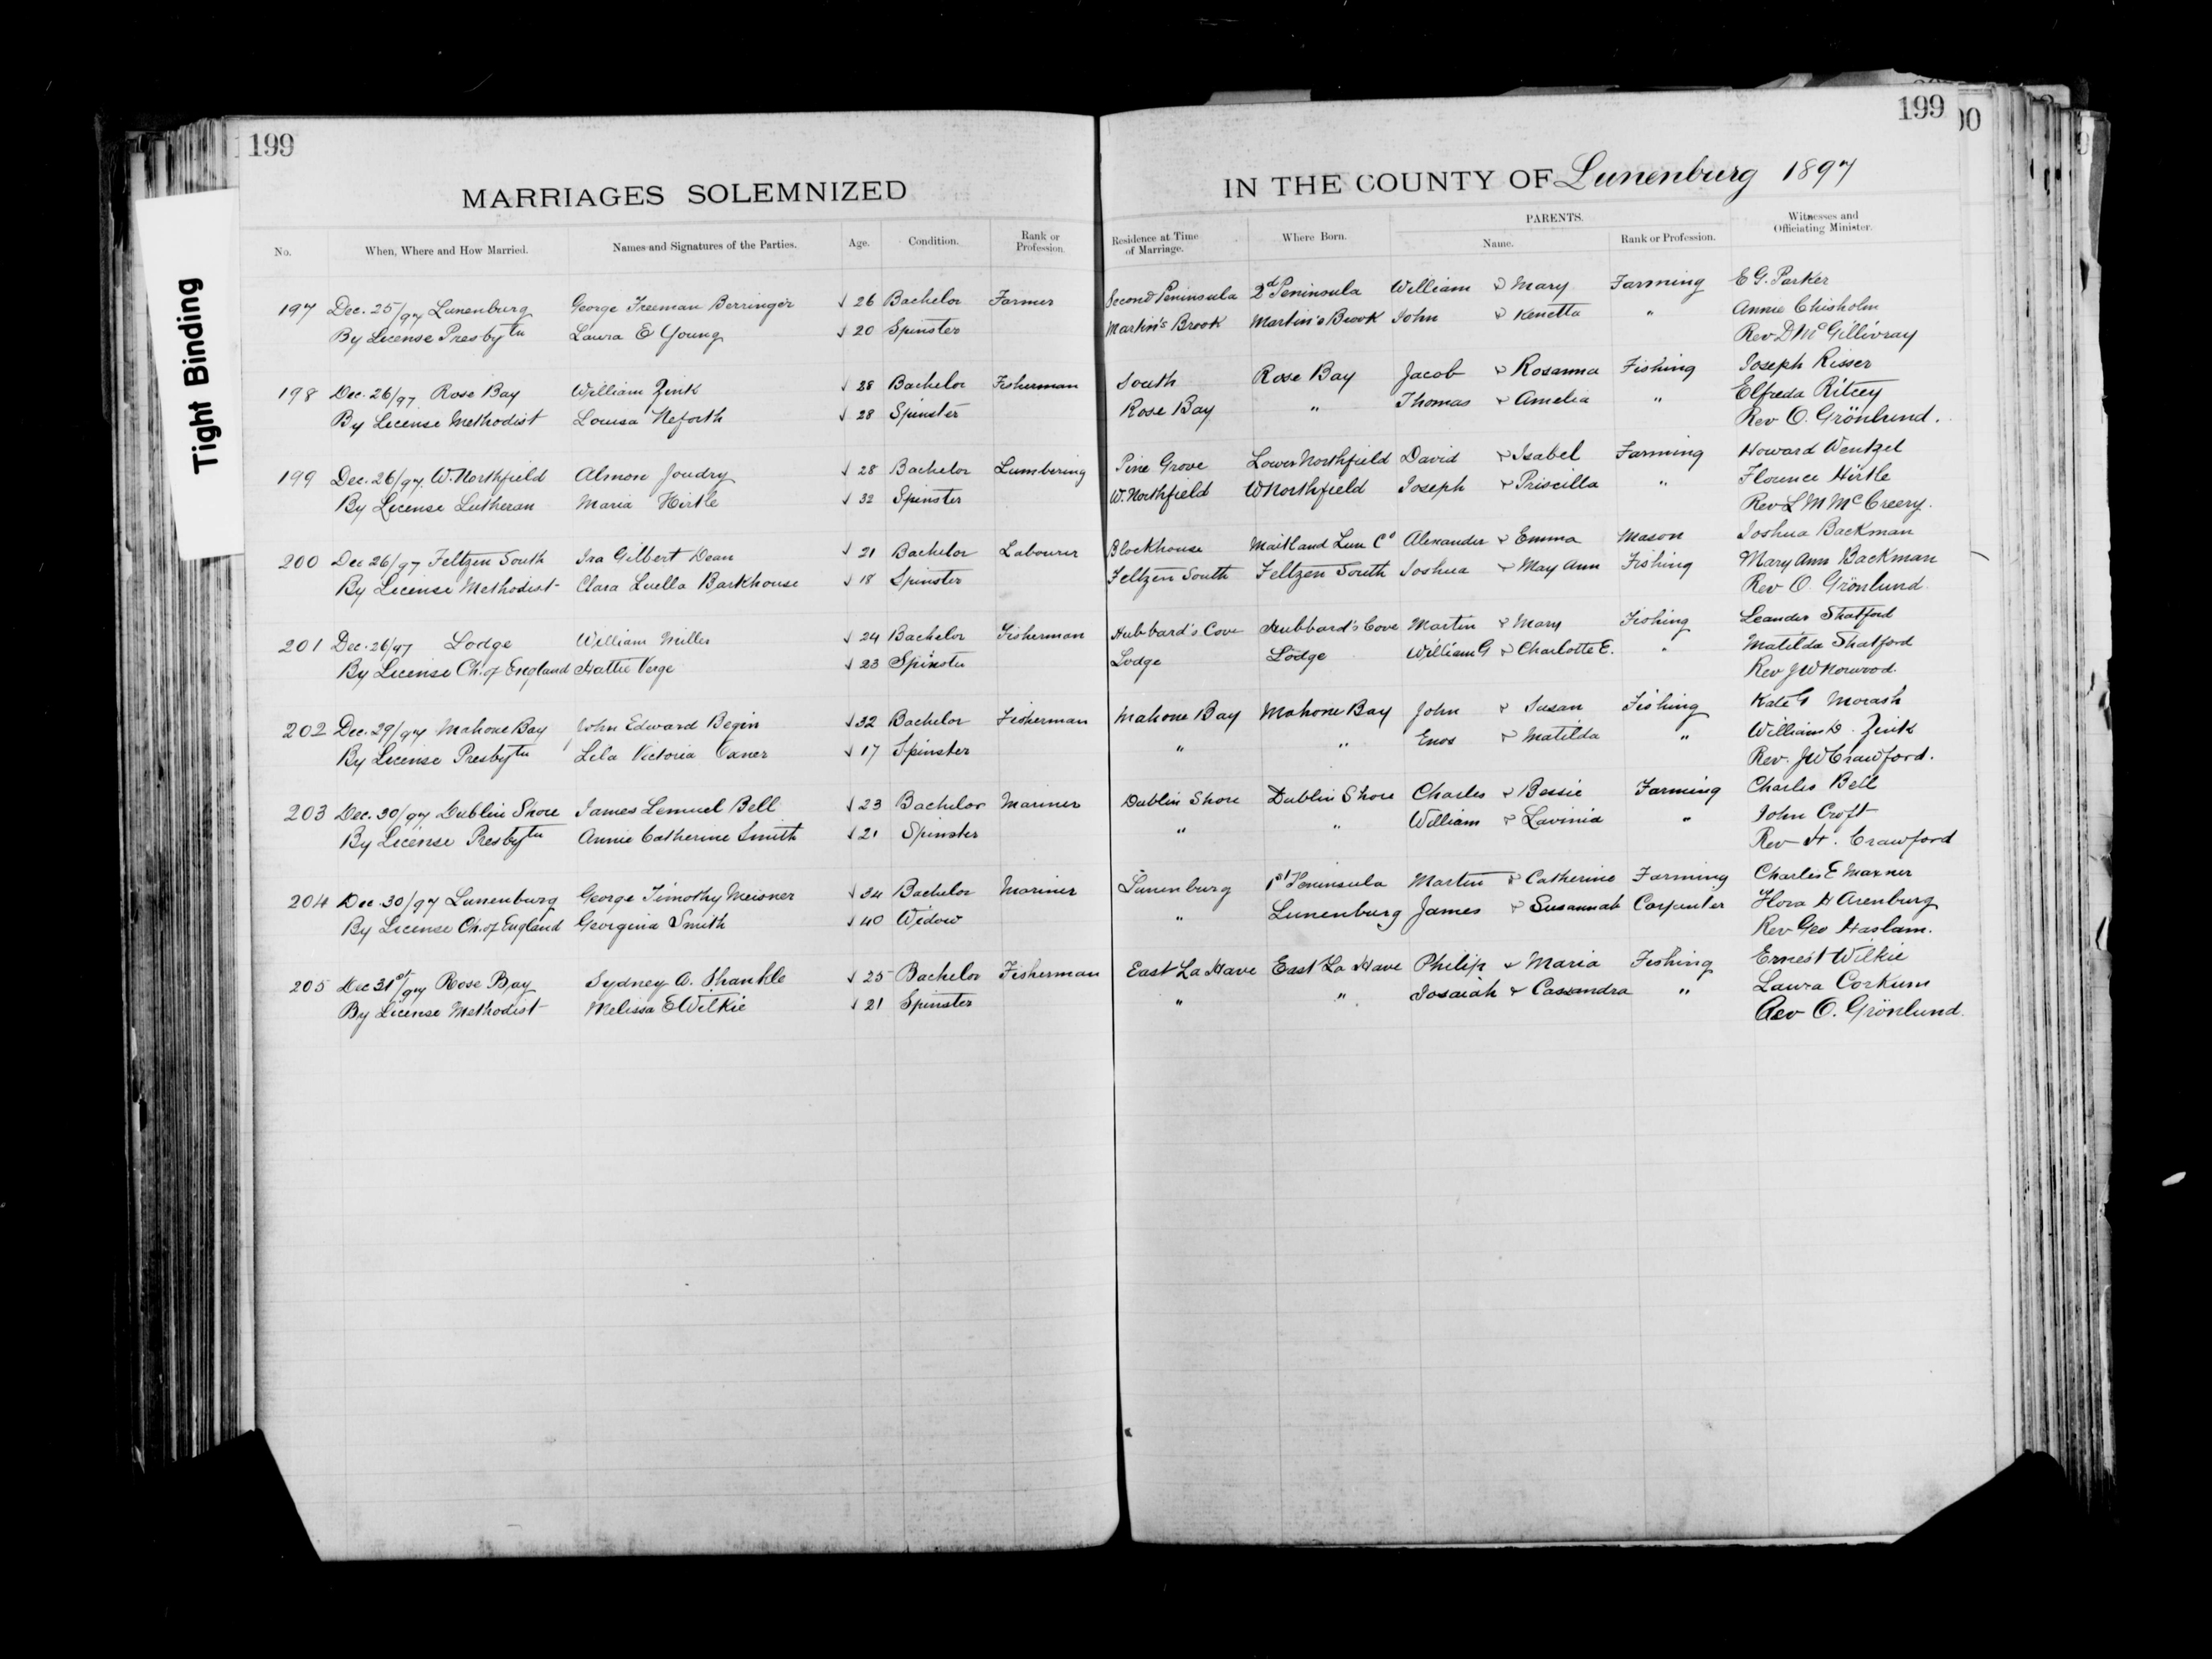 199
199
00
Tight Binding
MARRIAGES SOLEMNIZED IN THE COUNTY OF Lunenburg 1897
No. When, Where and How Married. Names and Signatures of the Parties. Age. Condition. Rank or Profession. Residence at Time of Marriage. Where Born. PARENTS. Name. Rank or Profession. Witnesses and Officiating Minister.
197 Dec. 25/97 Lunenburg George Freeman Berringer √ 26 Bachelor Farmer Second Peninsula 2d Peninsula William & Mary Farming E G. Parker
By License Presbytn Laura E Young √ 20 Spinster Martin's Brook Martin's Brook John & Kenetta " Annie Chisholm
Rev D McGillivray
198 Dec. 26/97 Rose Bay William Zink √ 28 Bachelor Fisherman South Rose Bay Jacob & Rosanna Fishing Joseph Risser
By License Methodist Louisa Neforth √ 28 Spinster Rose Bay " Thomas & Amelia " Elfreda Ritcey
Rev O. Grönlund.
199 Dec. 26/97. W. Northfield Almon Joudry √ 28 Bachelor Lumbering Pine Grove Lower Northfield David & Isabel Farming Howard Wentzel
By License Lutheran Maria Hirtle √ 32 Spinster W. Northfield W Northfield Joseph & Priscilla " Florence Hirtle
Rev L M McCreery.
200 Dec 26/97 Feltzen South Ira Gilbert Dean √ 21 Bachelor Labourer Blockhouse Maitland Lun Co Alexander & Emma Mason Joshua Backman
By License Methodist Clara Luella Barkhouse √ 18 Spinster Feltzen South Feltzen South Joshua & May Ann Fishing Mary Ann Backman
Rev O. Grönlund.
201 Dec. 26/97 Lodge William Miller √ 24 Bachelor Fisherman Hubbard's Cove Hubbard's Cove Martin & Mary Fishing Leander Shatford
By License Ch. of England Hattie Verge √ 23 Spinster Lodge Lodge William G & Charlotte E. " Matilda Shatford
Rev J W Norwood.
202 Dec. 29/97 Mahone Bay John Edward Begin √ 32 Bachelor Fisherman Mahone Bay Mahone Bay John & Susan Fishing Kate G Morash
By License Presbytn Lela Victoria Oxner √ 17 Spinster " " Enos & Matilda " William D. Zink
Rev. J W Crawford.
203 Dec. 30/97 Dublin Shore James Lemuel Bell √ 23 Bachelor Mariner Dublin Shore Dublin Shore Charles & Bessie Farming Charles Bell
By License Presbytn Annie Catherine Smith √ 21 Spinster " " William & Lavinia " John Croft
Rev H. Crawford
204 Dec. 30/97 Lunenburg George Timothy Meisner √ 34 Bachelor Mariner Lunenburg 1st Peninsula Martin & Catherine Farming Charles E Maxner
By License Ch. of England Georgina Smith √ 40 Widow " Lunenburg James & Susannah Carpenter Flora H Arenburg
Rev Geo Haslam.
205 Dec 31st/97 Rose Bay Sydney A. Shankle √ 25 Bachelor Fisherman East La Have East La Have Philip & Maria Fishing Ernest Wilkie
By License Methodist Melissa E Wilkie √ 21 Spinster " " Josaiah & Cassandra " Laura Corkum
Rev O. Grönlund.